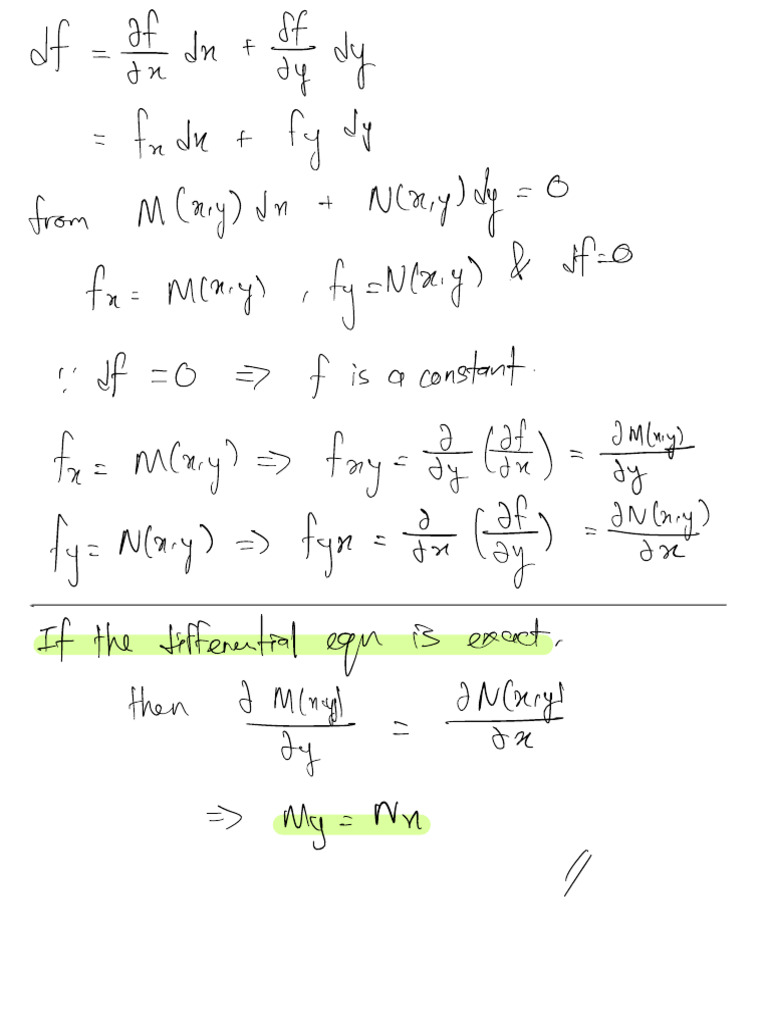 df = ∂f/∂x dx + δf/∂y dy
= fₓ dx + f_y dy
from M(x,y) dx + N(x,y) dy = 0
fₓ = M(x,y) , f_y = N(x,y) & df=0
∵ df = 0 ⇒ f is a constant.
fₓ = M(x,y) ⇒ f_xy = ∂/∂y (∂f/∂x) = ∂M(x,y)/∂y
f_y = N(x,y) ⇒ f_yx = ∂/∂x (∂f/∂y) = ∂N(x,y)/∂x
If the differential eqn is exact,
then ∂M(x,y)/∂y = ∂N(x,y)/∂x
⇒ M_y = Nₓ
//